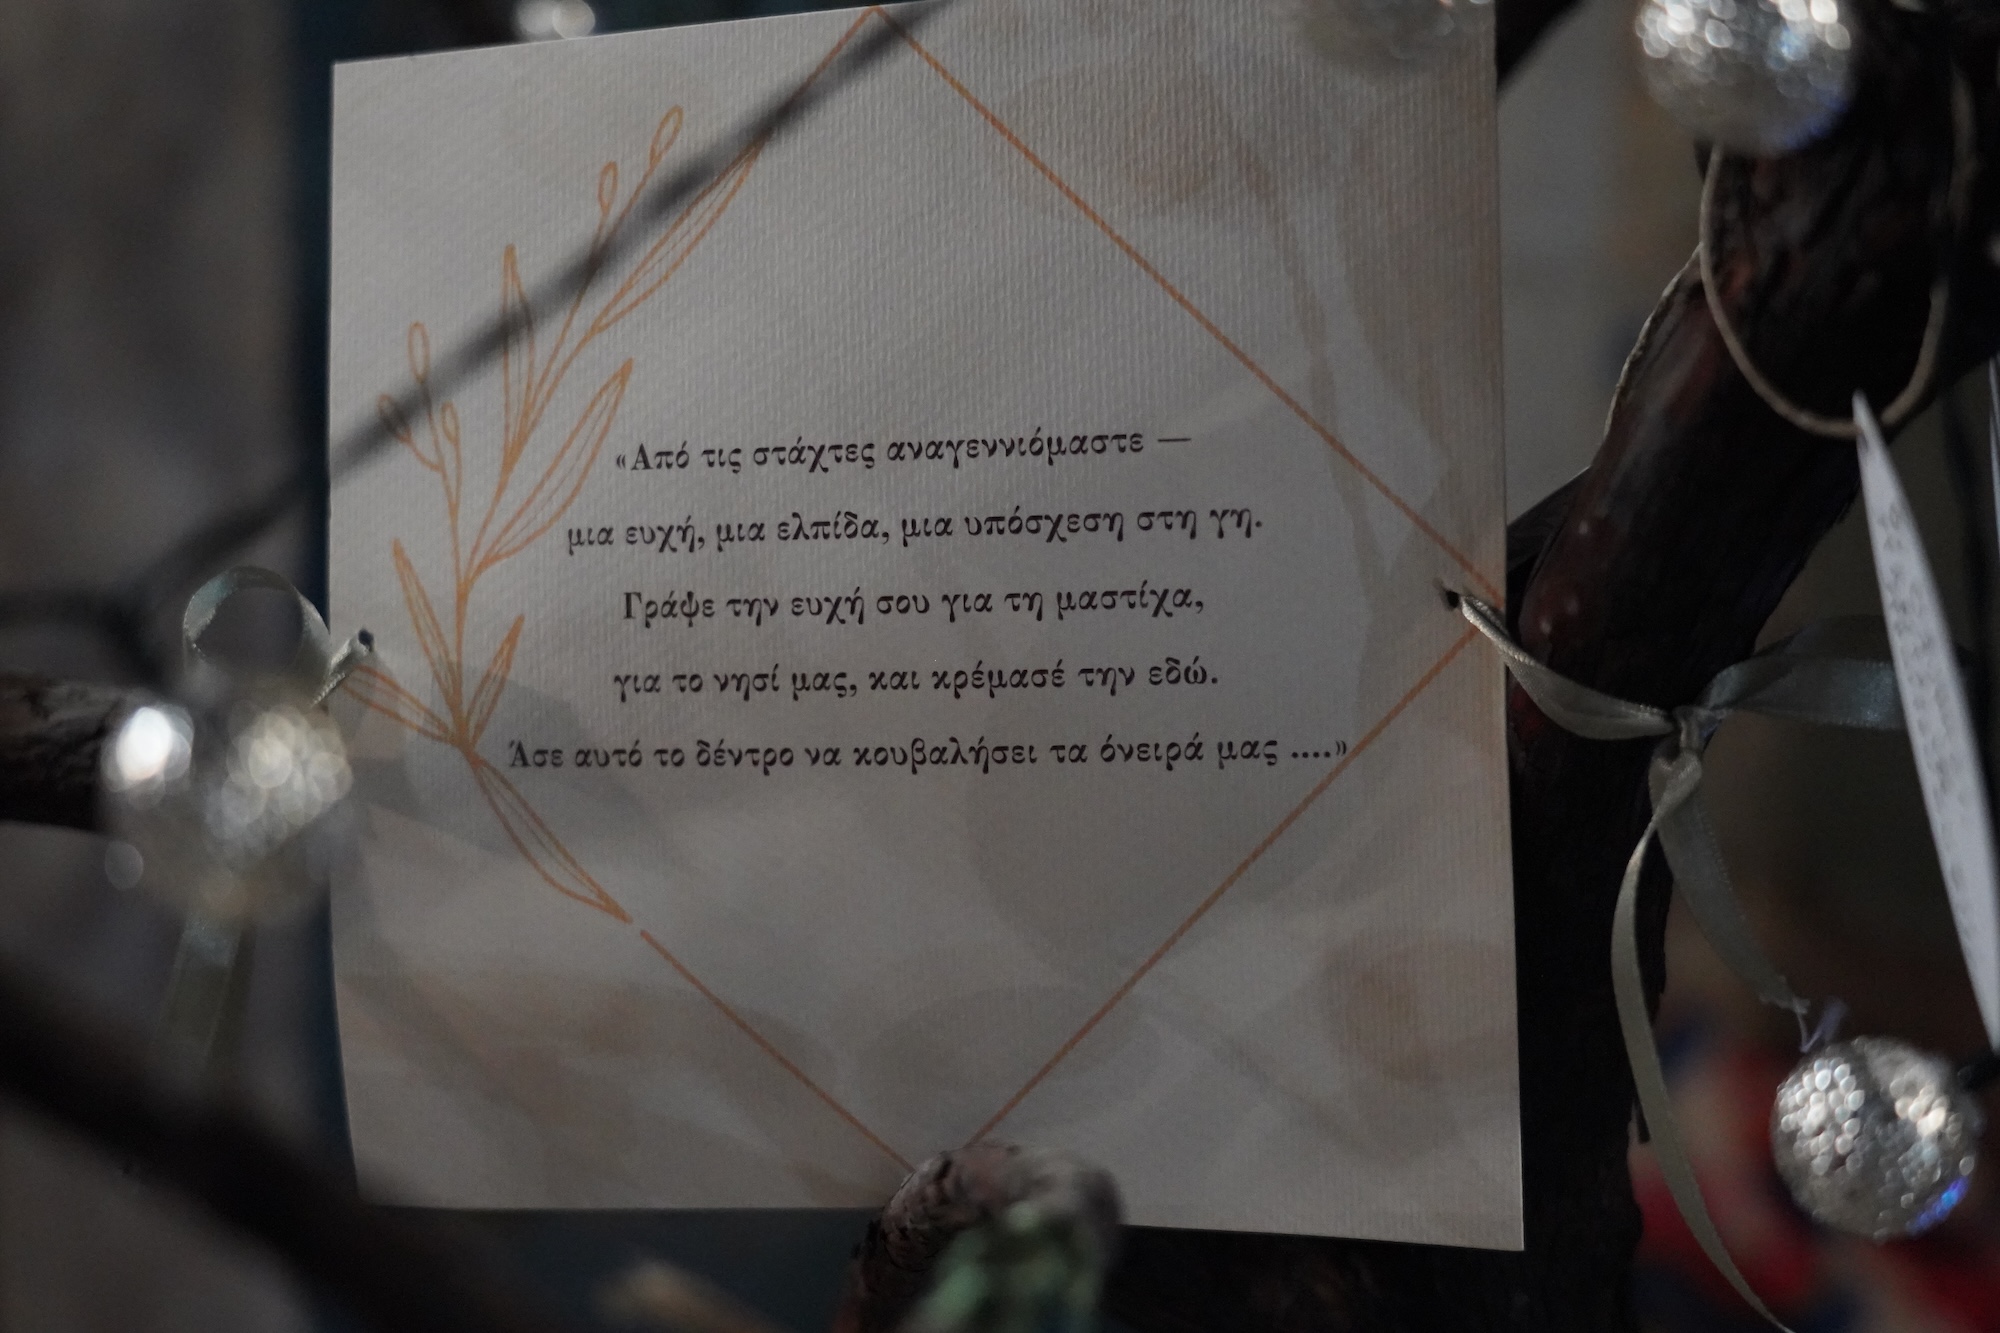 «Από τις στάχτες αναγεννιόμαστε —
μια ευχή, μια ελπίδα, μια υπόσχεση στη γη.
Γράψε την ευχή σου για τη μαστίχα,
για το νησί μας, και κρέμασέ την εδώ.
Άσε αυτό το δέντρο να κουβαλήσει τα όνειρά μας ....»